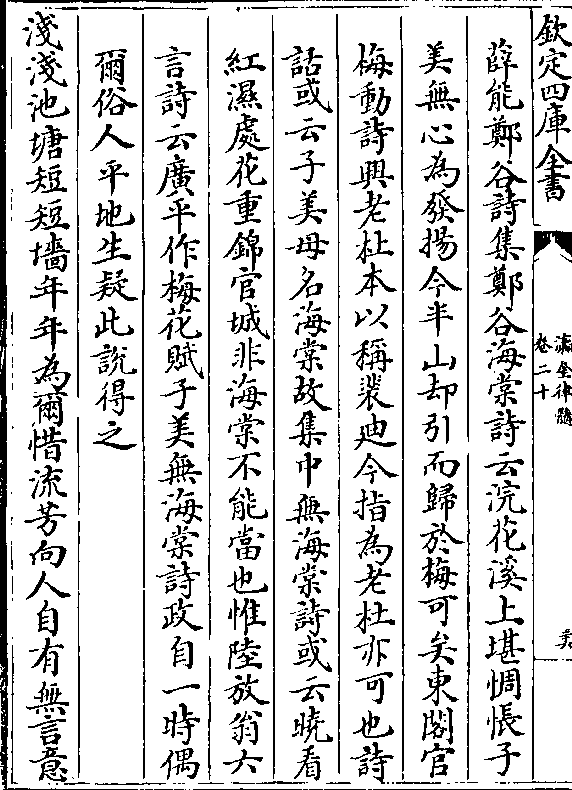 欽定四庫全書
瀛奎律髓
卷二十
薛能鄭谷詩集鄭谷海棠詩云浣花溪上堪惆悵子
美無心為發揚今半山却引而歸於梅可矣東閣官
梅動詩興老杜本以稱裴廸今指為老杜亦可也詩
話或云子美母名海棠故集中無海棠詩或云曉看
紅濕處花重錦官城非海棠不能當也惟陸放翁大
言詩云廣平作梅花賦子美無海棠詩政自一時偶
爾俗人平地生疑此說得之
淺淺池塘短短墻年年為爾惜流芳向人自有無言意